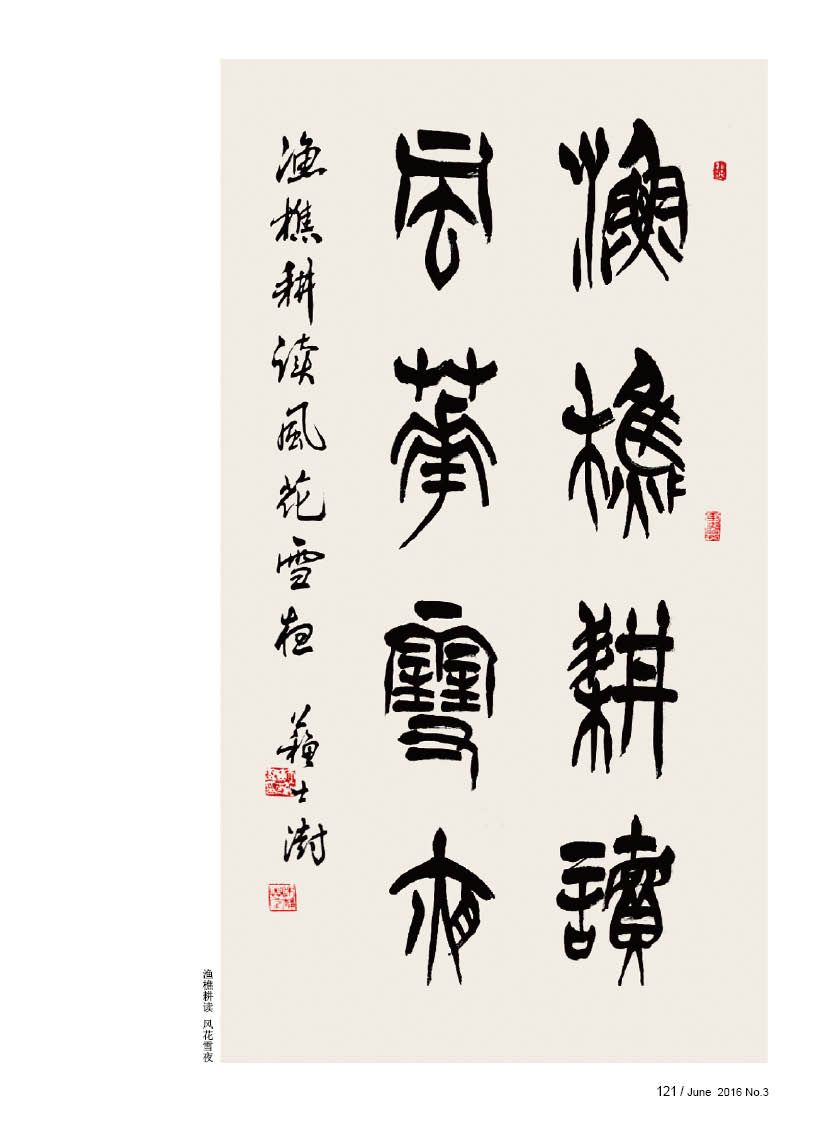 漁樵耕讀
風華雪夜
漁樵耕读風花雪夜 蘇士澍
渔樵耕读 风花雪夜
121 / June 2016 No.3